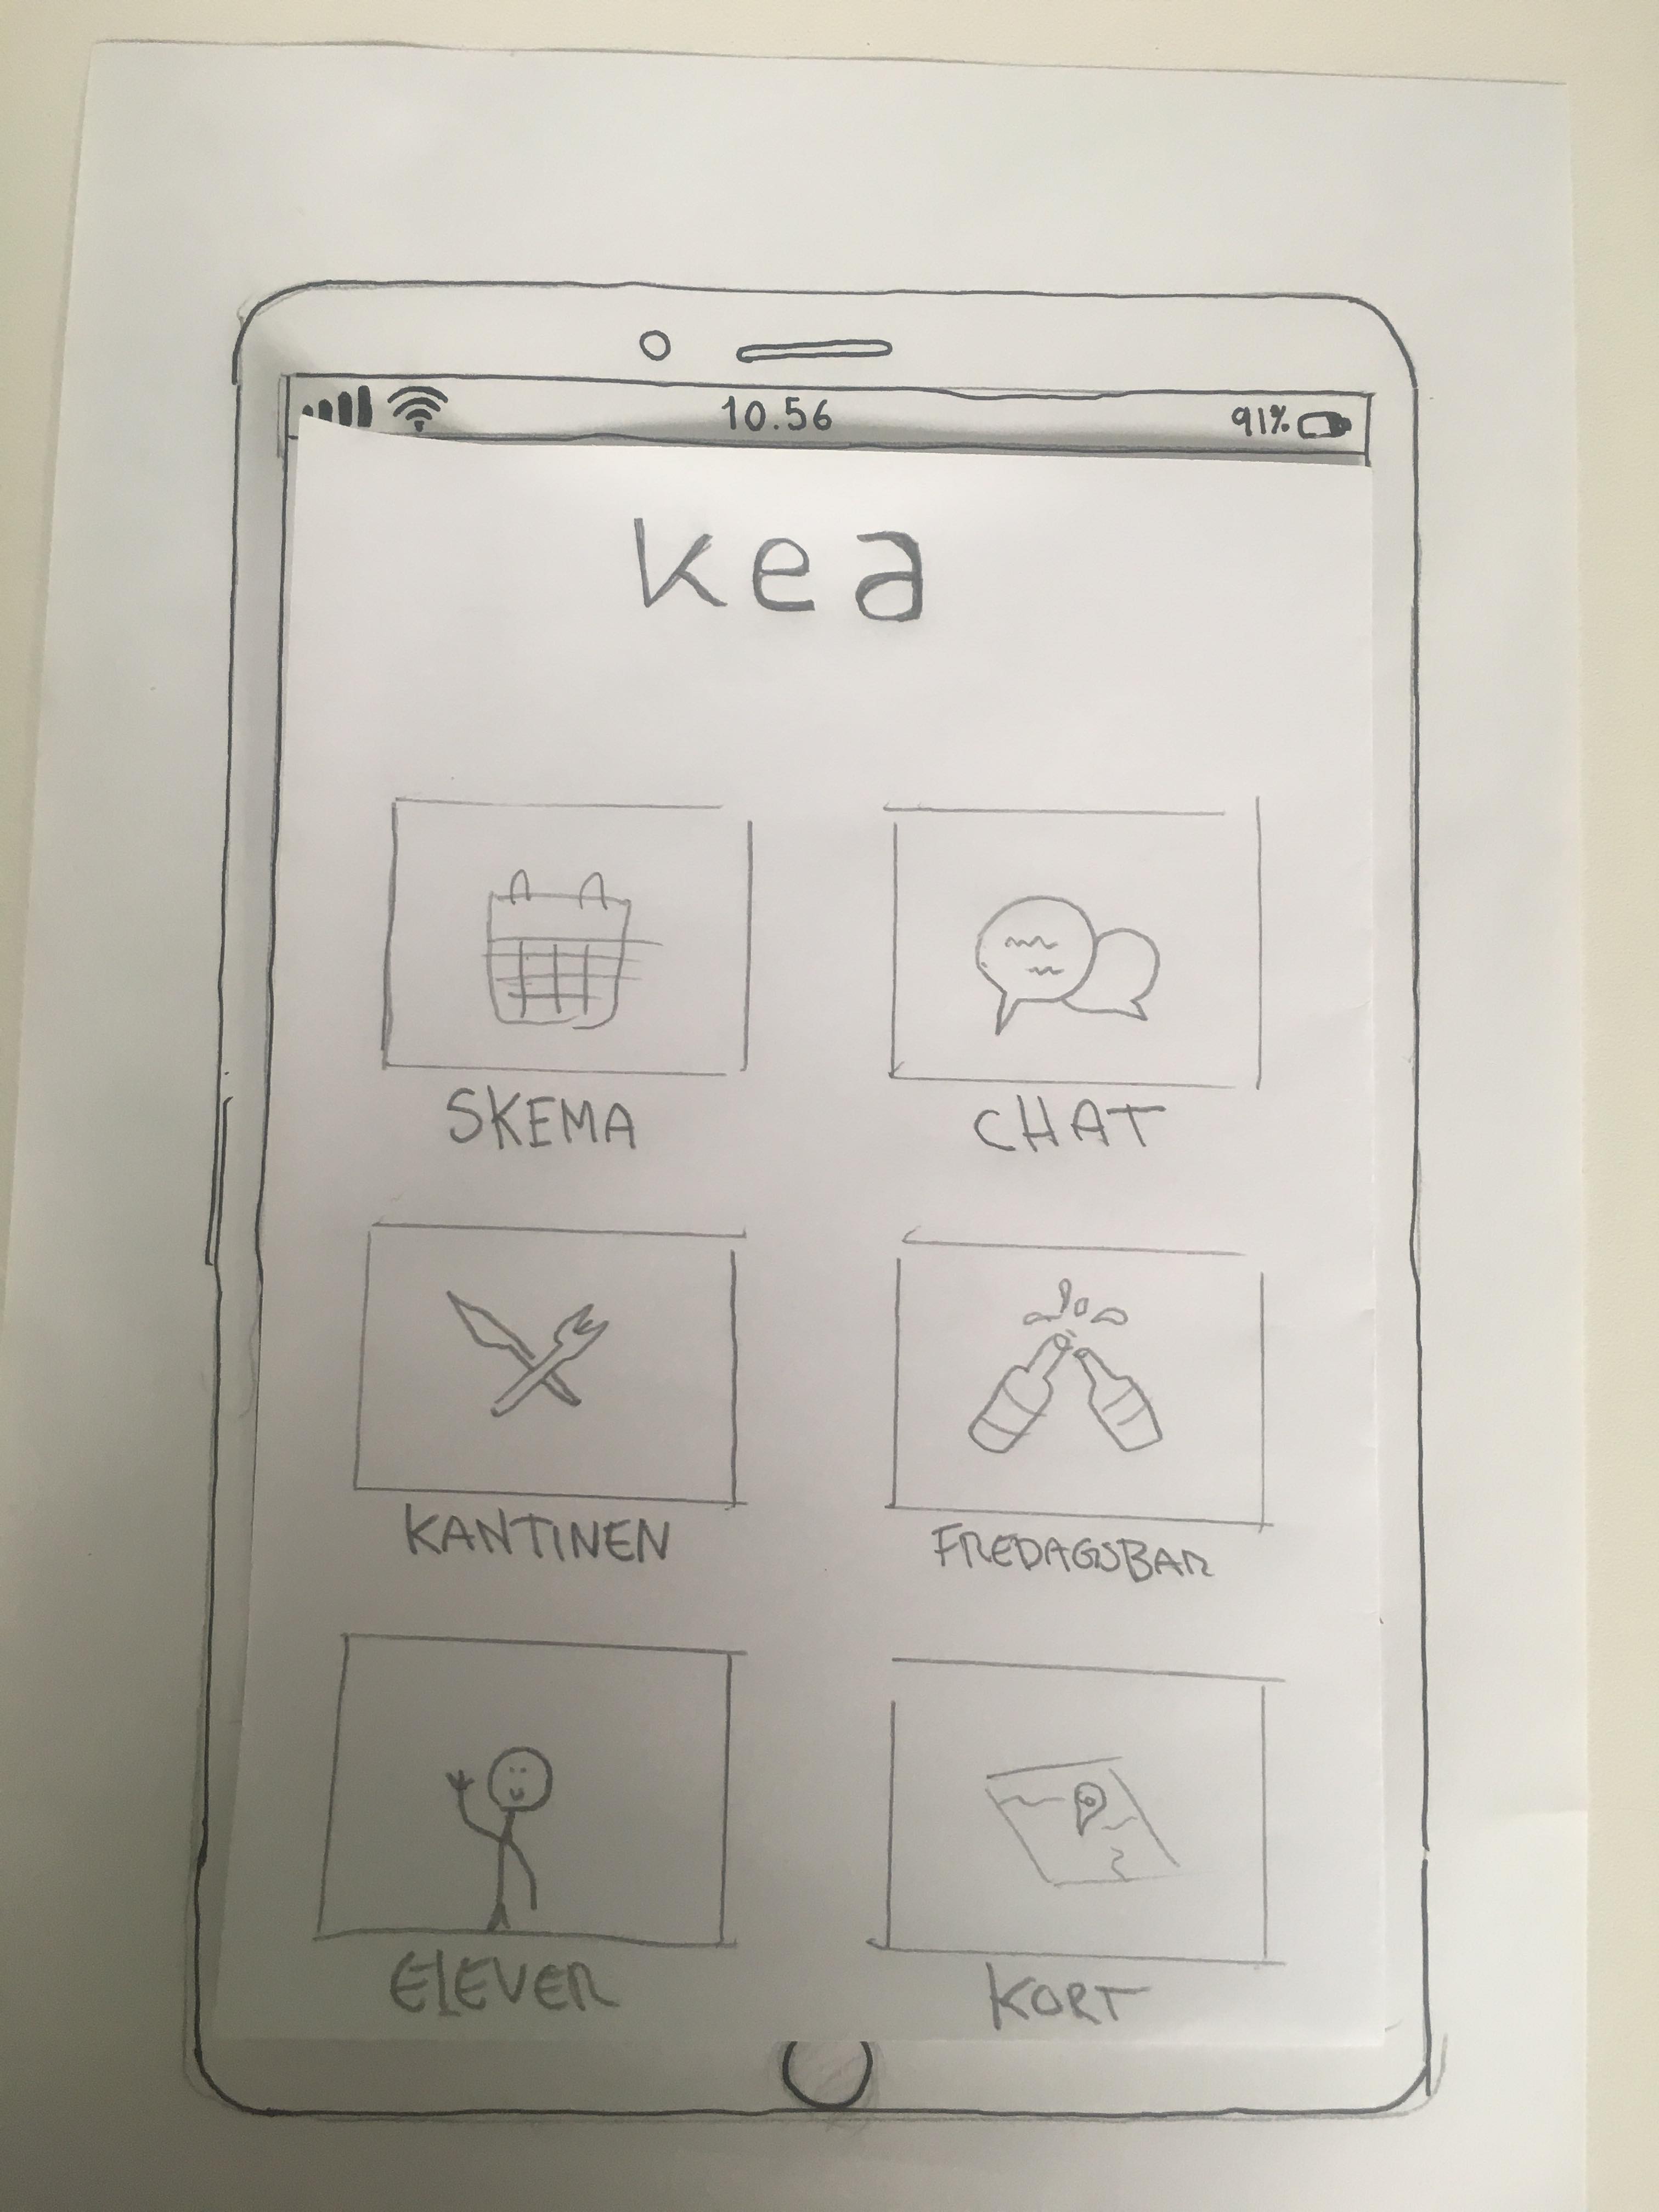 10.56 91%
kea
SKEMA CHAT
KANTINEN FREDAGSBAR
ElEVER KORT